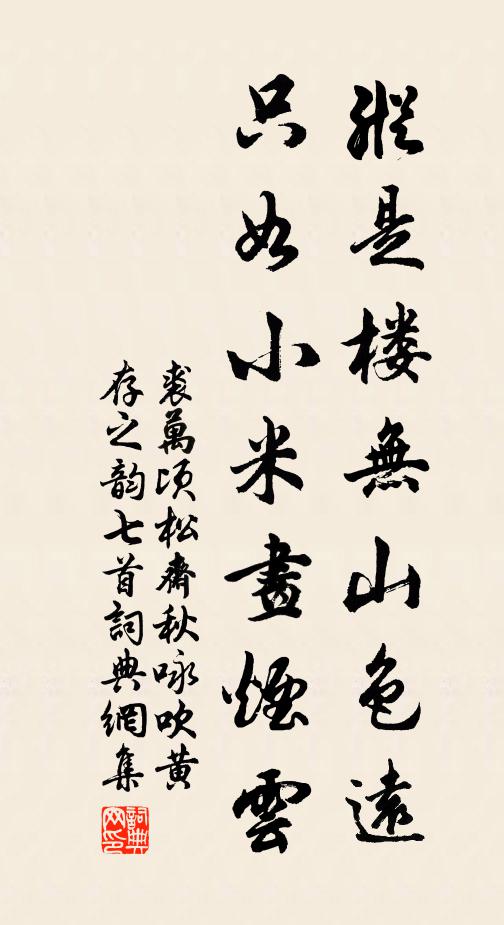 縱是樓無山色遠
只如小米畫煙雲
裘萬頃松齋秋咏吹黄
存之韵七首詞典網集
詞典网印